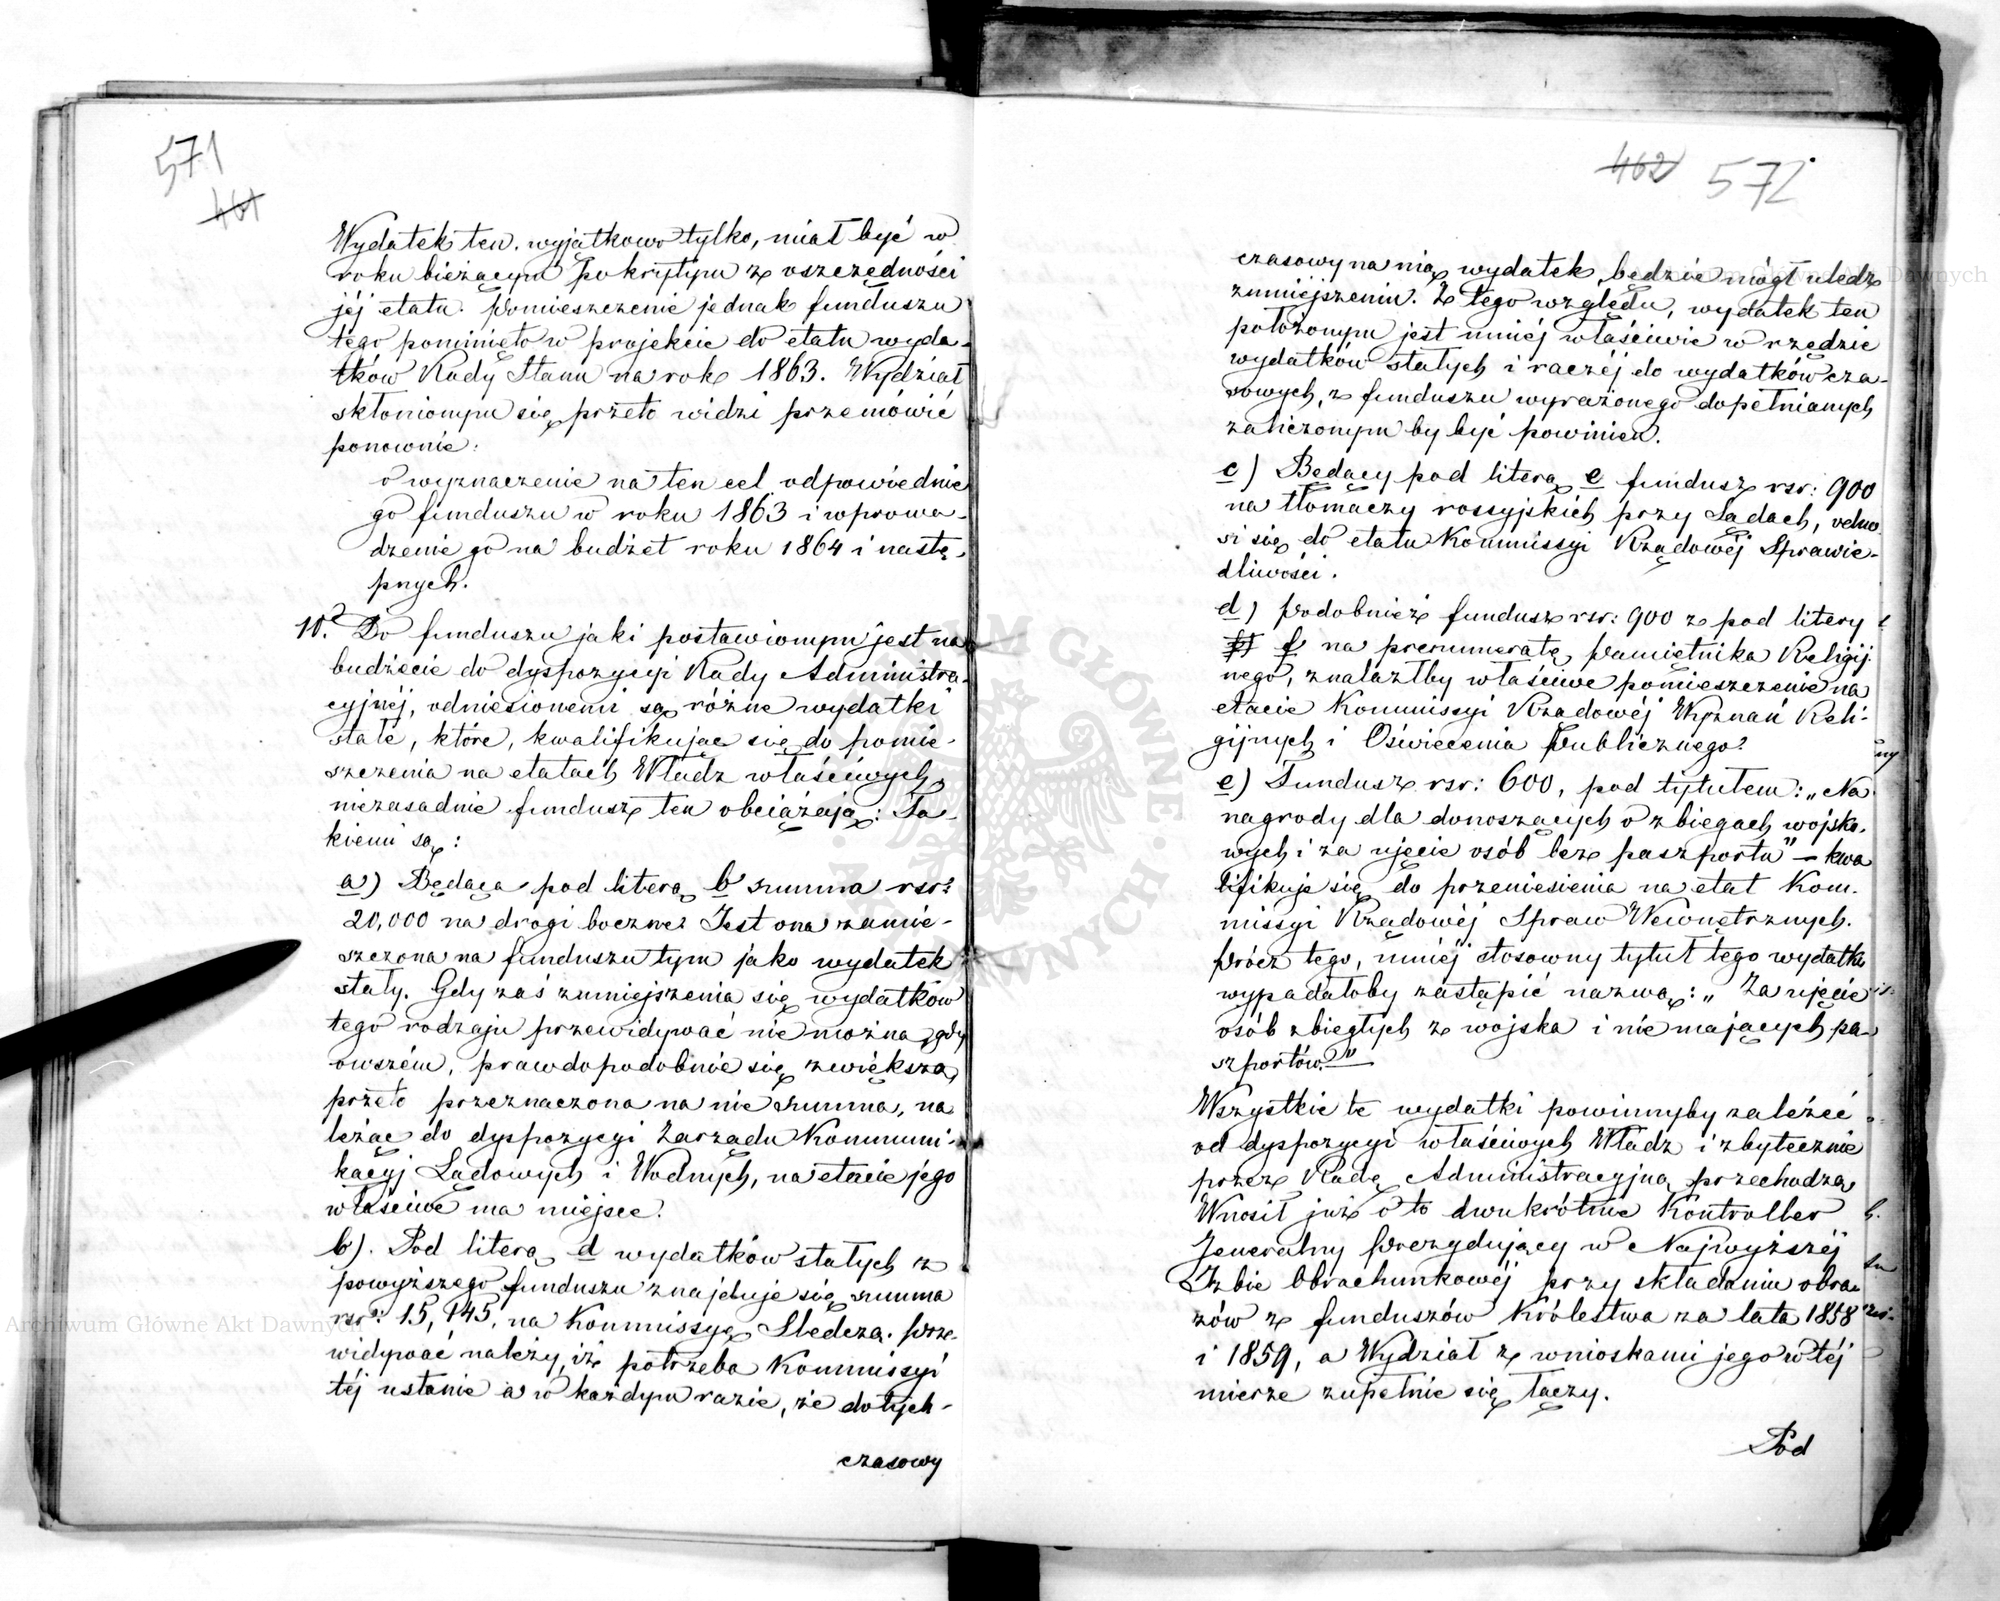 571
461
Wydatek ten, wyjątkowo tylko, miał być w
roku bieżącym pokrytym z oszczędności
jéj etatu. Pomieszczenie jednak funduszu
tego pominięto w projekcie do etatu wyda-
tków Rady Stanu na rok 1863. Wydział
skłonionym się przeto widzi przemówić
ponownie:
o wyznaczenie na ten cel odpowiednie
go funduszu w roku 1863 i wprowa-
dzenie go na budżet roku 1864 i nastę-
pnych.
10. Do funduszu jaki postawionym jest na
budżecie do dyspozycyi Rady Administra-
cyjnéj, odniesionemi są różne wydatki
stałe, które, kwalifikując się do pomie-
szczenia na etatach Władz właściwych,
niezasadnie fundusz ten obciążają: Ta-
kiemi są:
a) Będąca pod literą b summa rsr:
20,000 na drogi boczne. Jest ona zamie-
szczona na funduszu tym jako wydatek
stały. Gdy zaś zmniejszenia się wydatków
tego rodzaju przewidywać nie można, gdy
owszém, prawdopodobnie się zwiększą,
przeto przeznaczona na nie summa, na
leżąc do dyspozycyi Zarządu Kommuni-
kacyj Lądowych i Wodnych, na etacie jego
właściwe ma miejsce.
b). Pod literą d wydatków stałych z
powyższego funduszu znajduje się summa
rsr: 15,145, na Kommissyę Śledczą. Prze-
widywać należy, iż potrzeba Kommissyi
téj ustanie a w każdym razie, że dotych-
czasowy
462 572
czasowy na nią wydatek, będzie mógł uledz
zmniejszeniu. Z tego względu, wydatek ten
położonym jest mniéj właściwie w rzędzie
wydatków stałych i raczéj do wydatków cza-
sowych, z funduszu wyrażonego dopełnianych
zaliczonym by być powinien.
c) Będący pod literą e fundusz rsr: 900
na tłomaczy rossyjskich przy Sądach, odno
si się do etatu Kommissyi Rządowéj Sprawie-
dliwości.
d) Podobnież fundusz rsr: 900 z pod litery
f na prenumeratę Pamiętnika Religij-
nego, znalazłby właściwe pomieszczenie na
etacie Kommissyi Rządowéj Wyznań Reli-
gijnych i Oświecenia Publicznego.
e) Fundusz rsr: 600, pod tytułem: „Na
nagrody dla donoszących o zbiegach wojsko-
wych i za ujęcie osób bez paszportu" – kwa
lifikuje się do przeniesienia na etat Kom-
missyi Rządowéj Spraw Wewnętrznych.
Prócz tego, mniéj stosowny tytuł tego wydatku
wypadałoby zastąpić nazwą: „Za ujęcie
osób zbiegłych z wojska i nie mających pa-
szportów."
Wszystkie te wydatki powinnyby zależeć
od dyspozycyi właściwych Władz i zbytecznie
przez Radę Administracyjną przechodzą.
Wnosił już o to dwukrótnie Kontroller
Jeneralny Prezydujący w Najwyższéj
Izbie Obrachunkowéj przy składaniu obra-
zów z funduszów Królestwa za lata 1858
i 1859, a Wydział z wnioskami jego w téj
mierze zupełnie się łączy.
Pod
Archiwum Główne Akt Dawnych